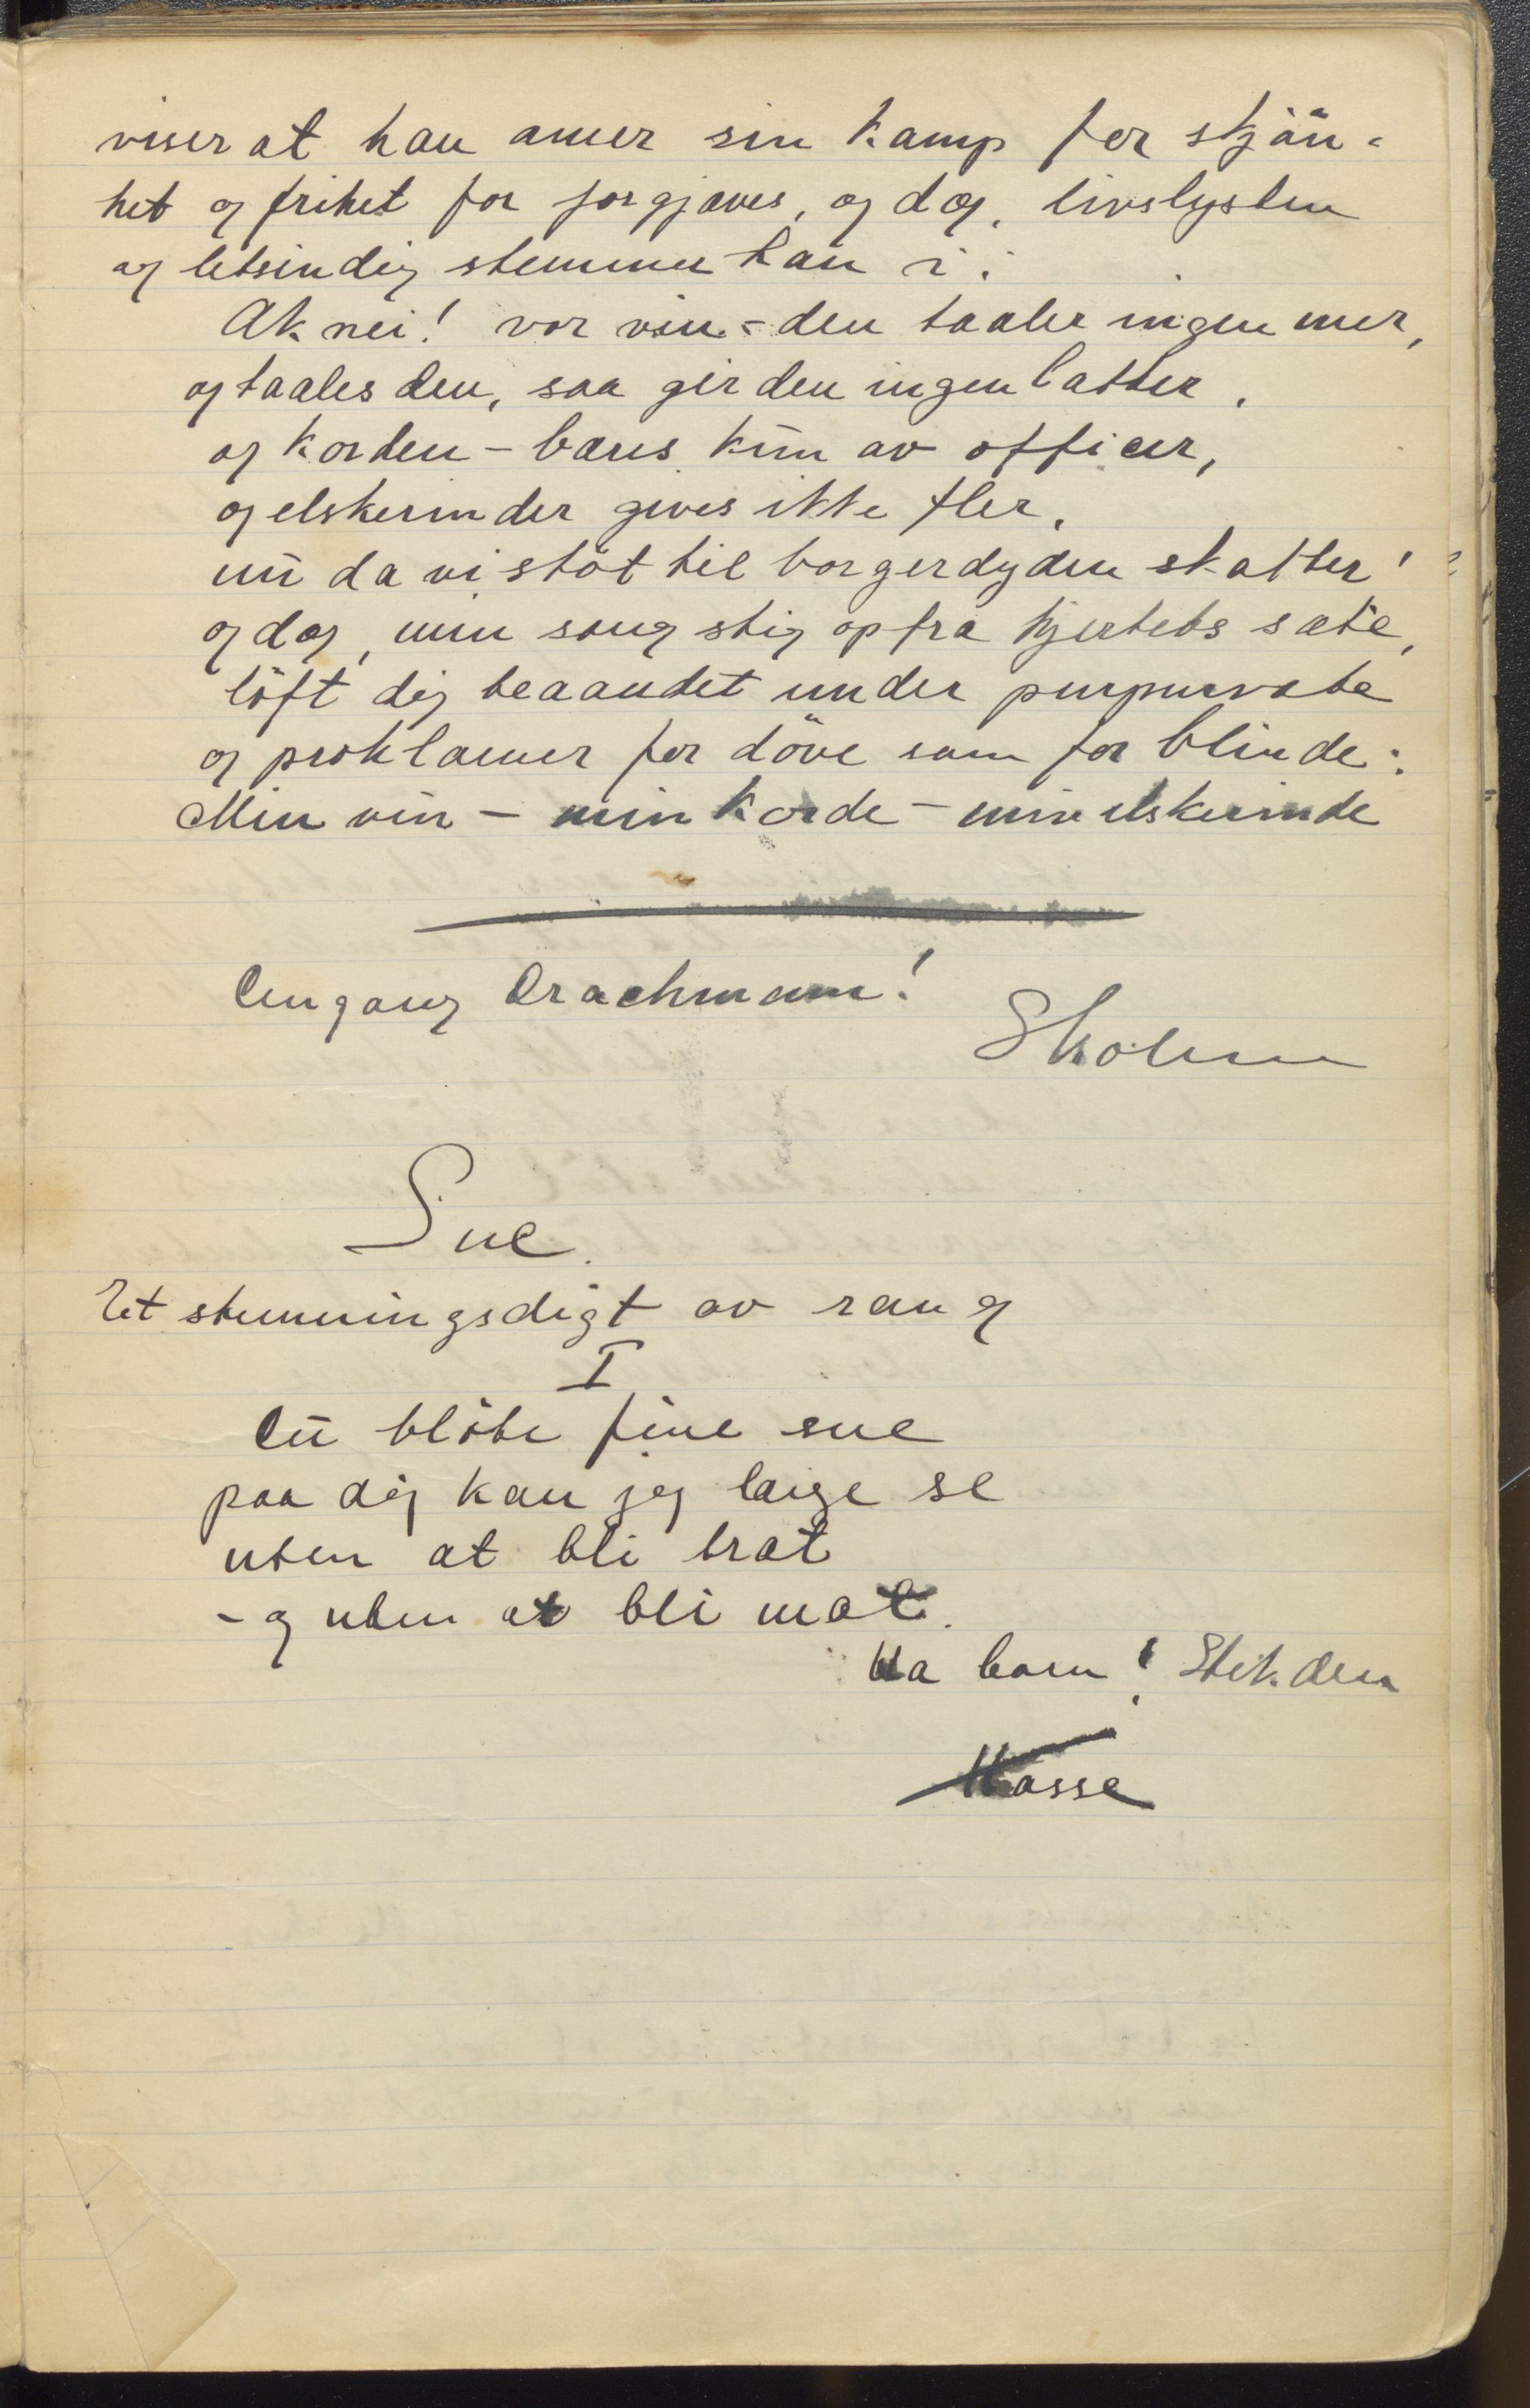 viser at han aner sin kamp for skjön-
het og frihet for forgjæves, og dog, livslysten
og letsindig stemmer han i:
Ak nei! vor vin - den taaler ingen mer,
og taales den, saa gir den ingen latter,
og korden - bæres kun av officer,
og elskerinder gives ikke fler,
nu da vi støt til borgerdyden skatter!
og dog, min sang stig op fra hjertets sæte,
löft dig beaandet under purpurvæte
og proklamer for döve som for blinde:
Min vin - min korde - min elskerinde
Engang Drachmann!
Skolum
Sne.
Et stemningsdigt av rang
I
Du blöte fine sne
paa dig kan jeg længe se
uten at bli træt
- og uten at bli mæt.
Ha barn! Stik den
Hasse